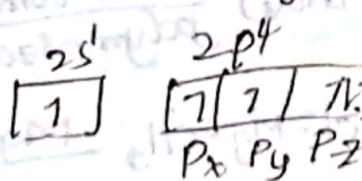 2s¹ 2p⁴
1 1 1 1↓
Px Py Pz